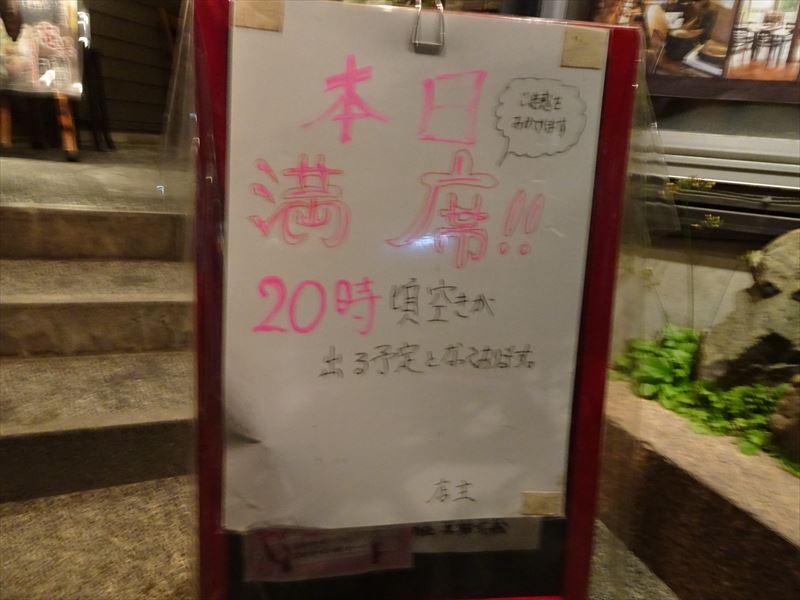 本日
ご迷惑を
おかけします
満席!!
20時頃空きが
出る予定となっております。
店主